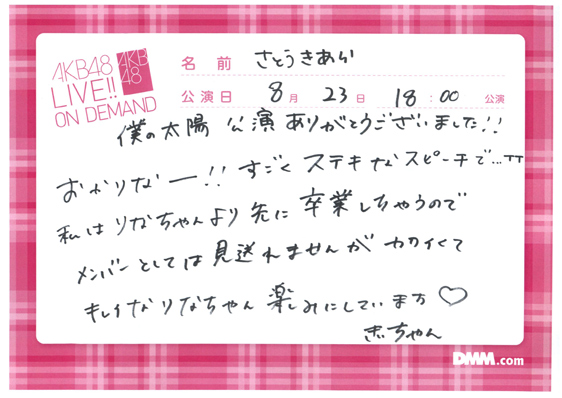 AKB48
LIVE!!
ON DEMAND
AKB
48
名前 さとうきあら
公演日 8月23日 18:00 公演
僕の太陽 公演ありがとうございました!!
おかりなー!! すごくステキなスピーチで…TT
私はりなちゃんより先に卒業しちゃうので
メンバーとしては見送れませんが カワイくて
キレイなりなちゃん 楽しみにしています♡
きちゃん
DMM.com